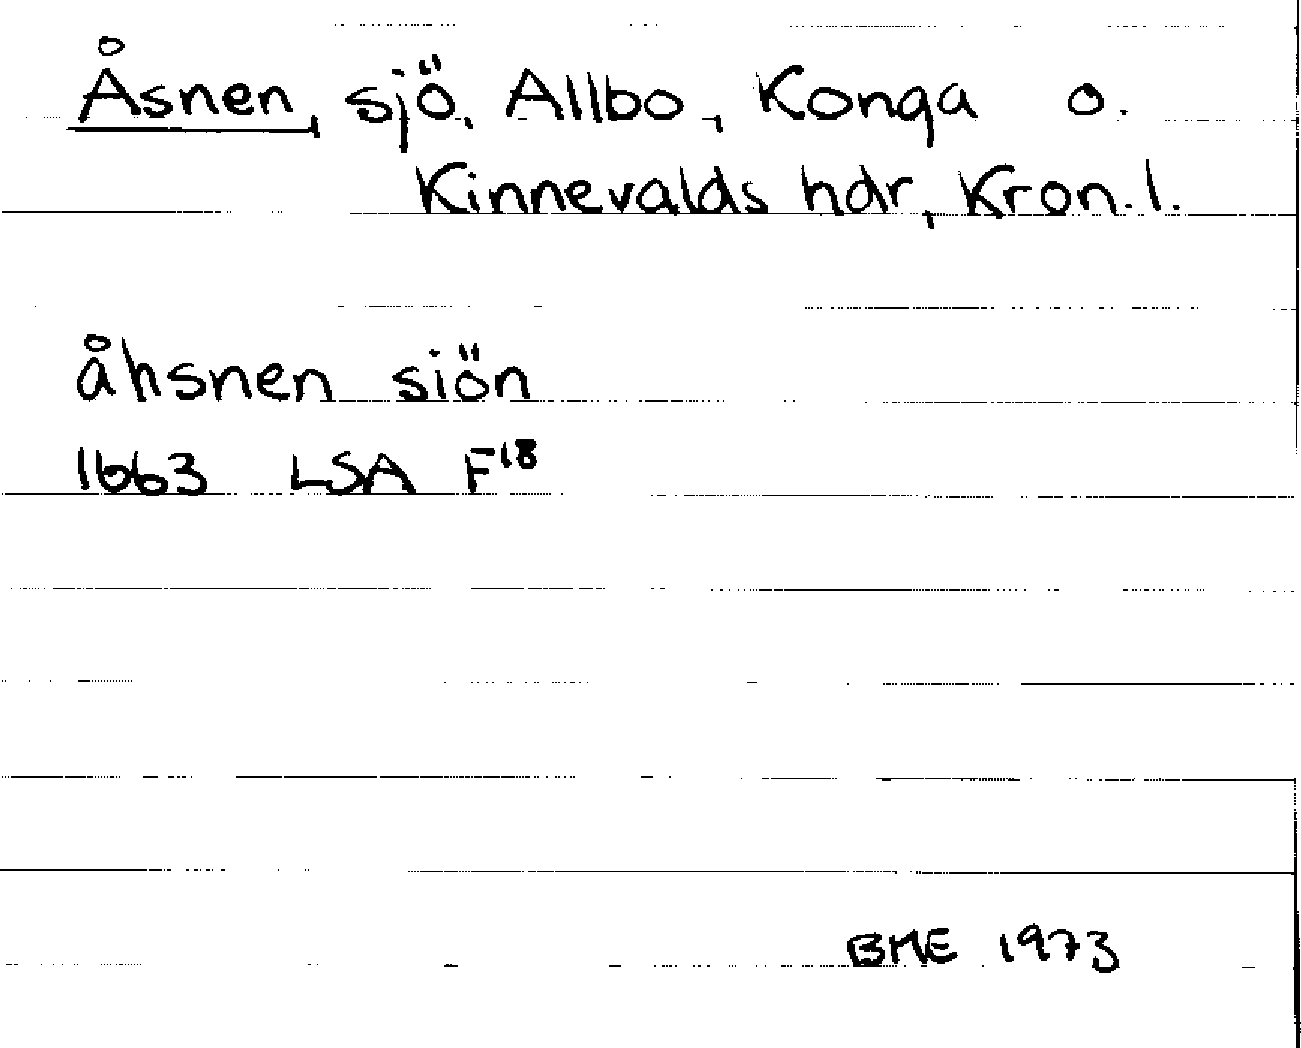 Åsnen, sjö, Allbo, Konga o.
Kinnevalds hdr, Kron. l.
åhsnen siön
1663 LSA F18
BME 1973